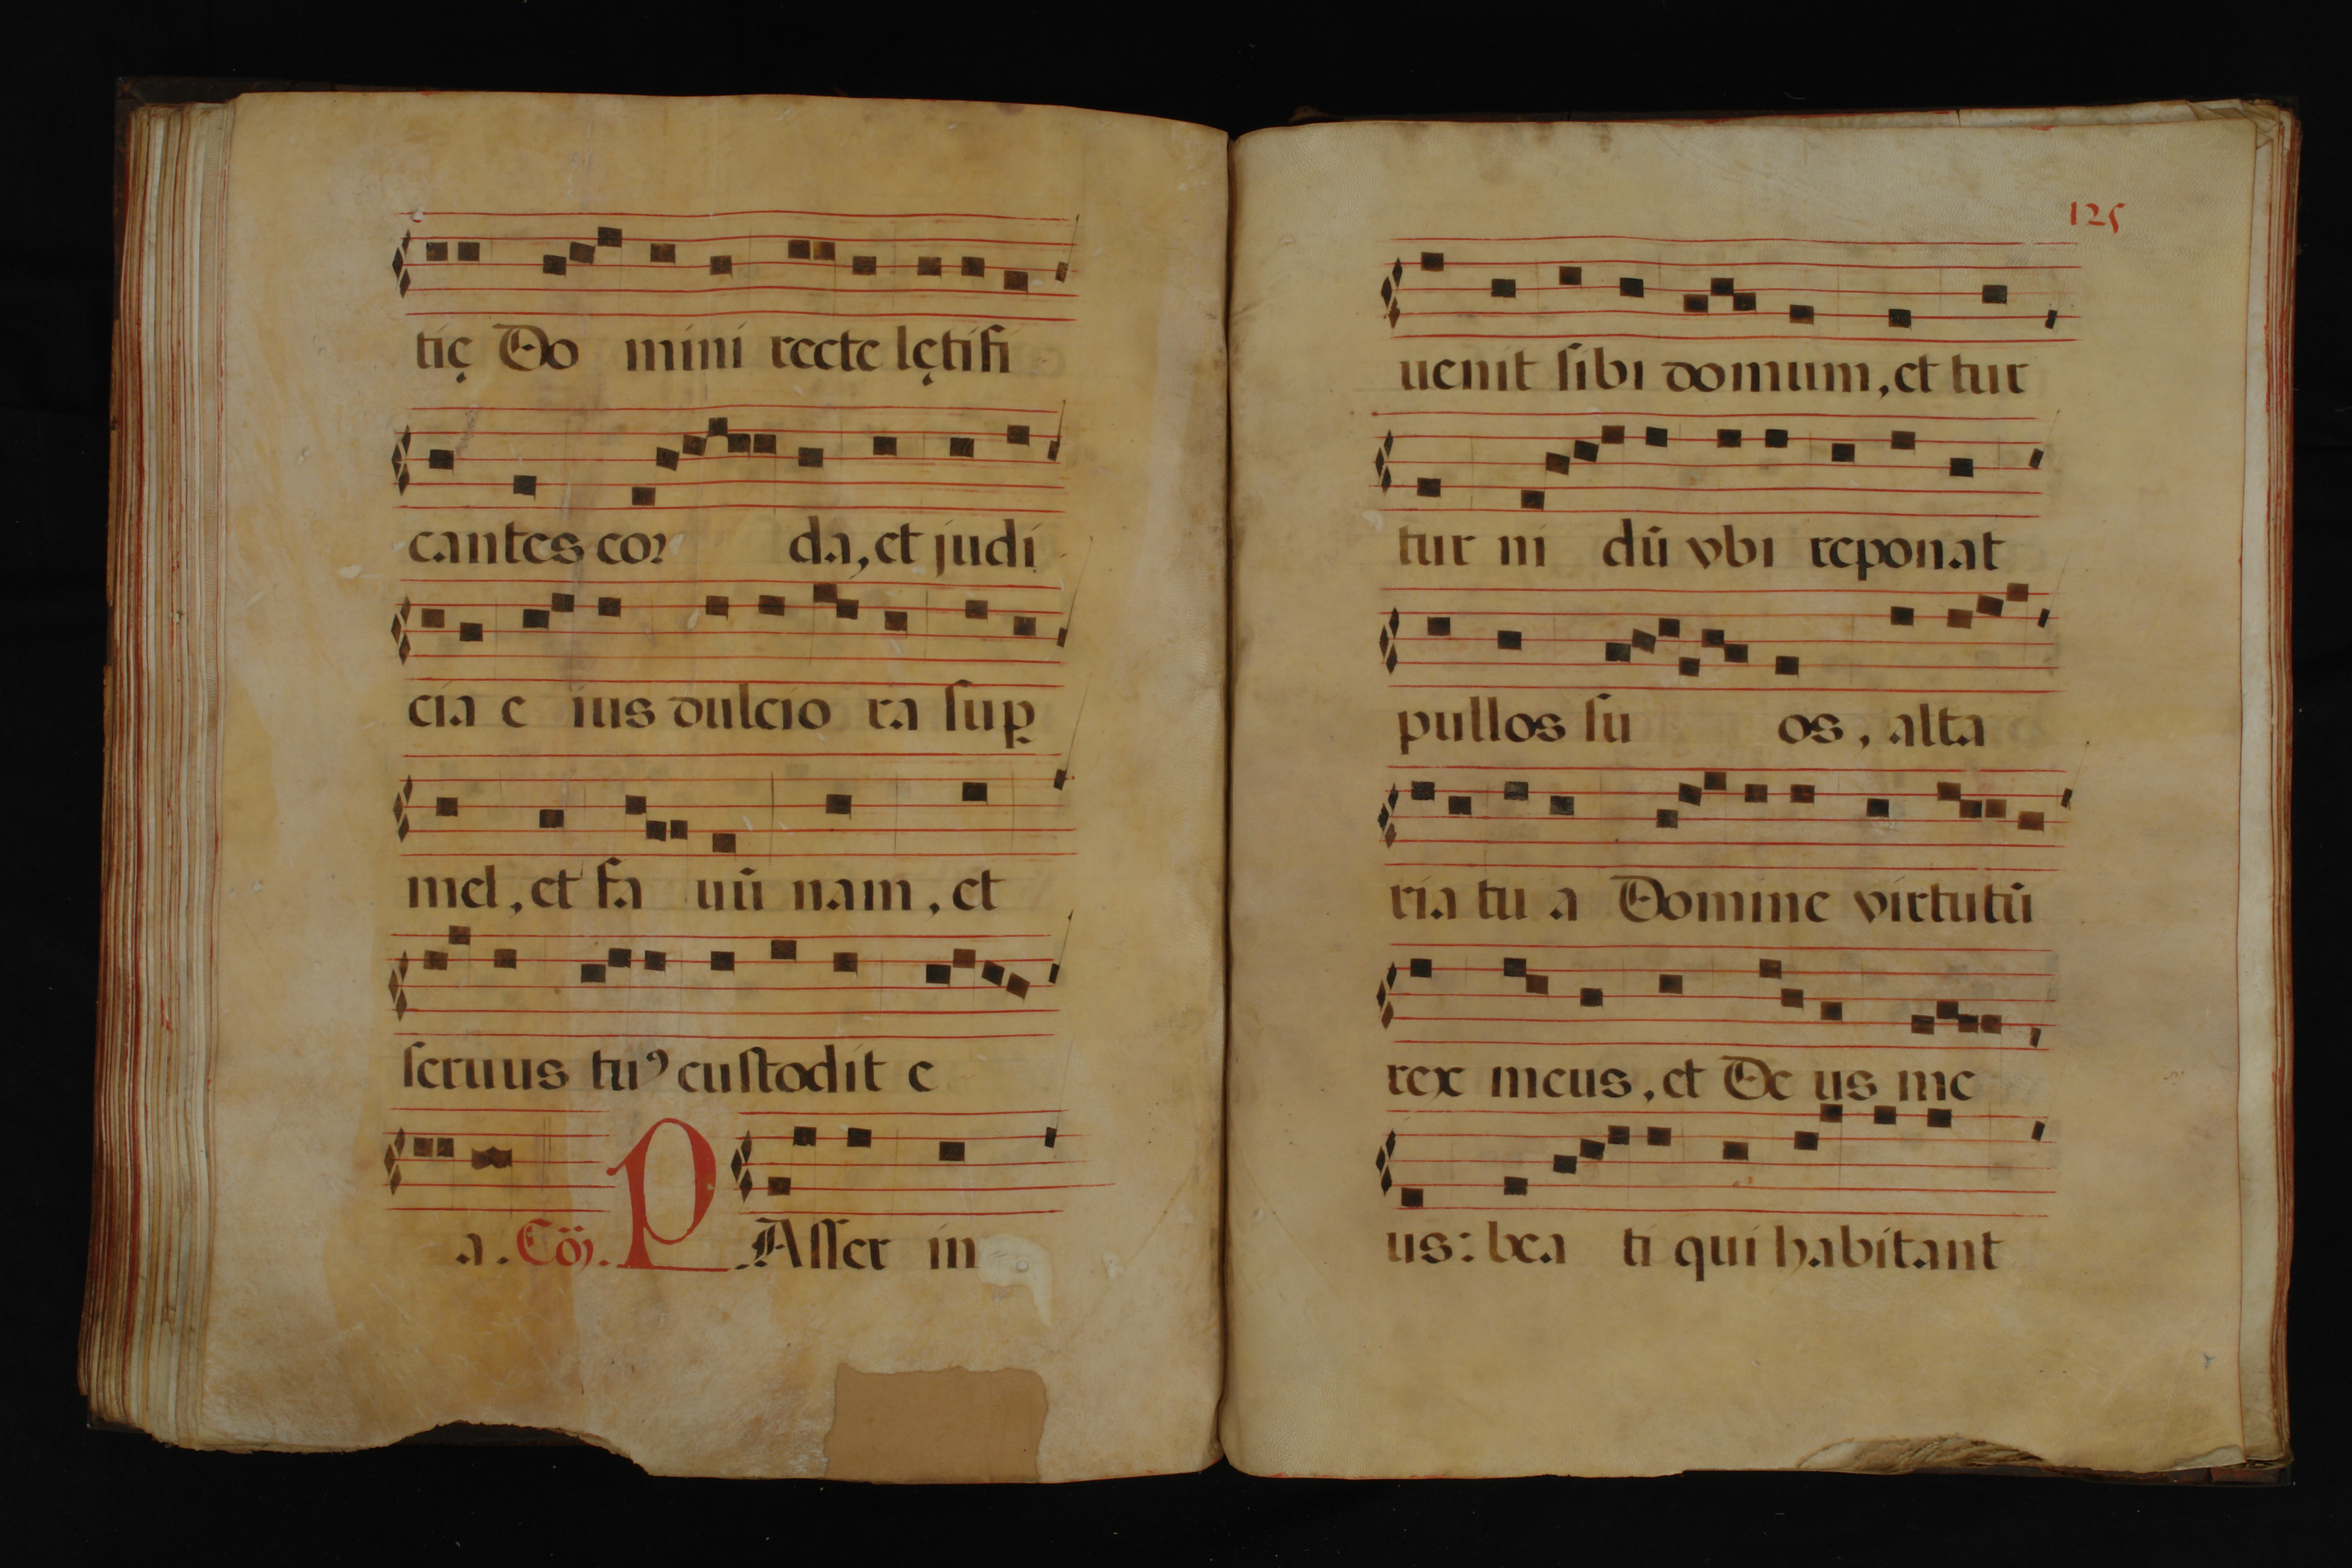 tię Do mini recte lętifi
cantes cor da, et judi
cia e ius dulcio ra suꝑ
mel, et fa uū nam, et
seruus tuꝰ custodit e
a. Cō̃. P Asser in
125
uenit sibi domum, et tur
tur ni dū vbi reponat
pullos su os, alta
ria tu a Domine virtutū
rex meus, et De us me
us: bea ti qui habitant